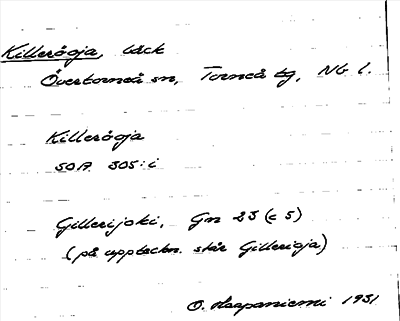 Killeråoja, bäck
Övertorneå sn, Torneå tg, Nb l.
Killeråoja
SOA 305:i
Gillerijoki, Gn 23 (c 5)
(på uppteckn. står Gillerioja)
O. Haapaniemi 1931